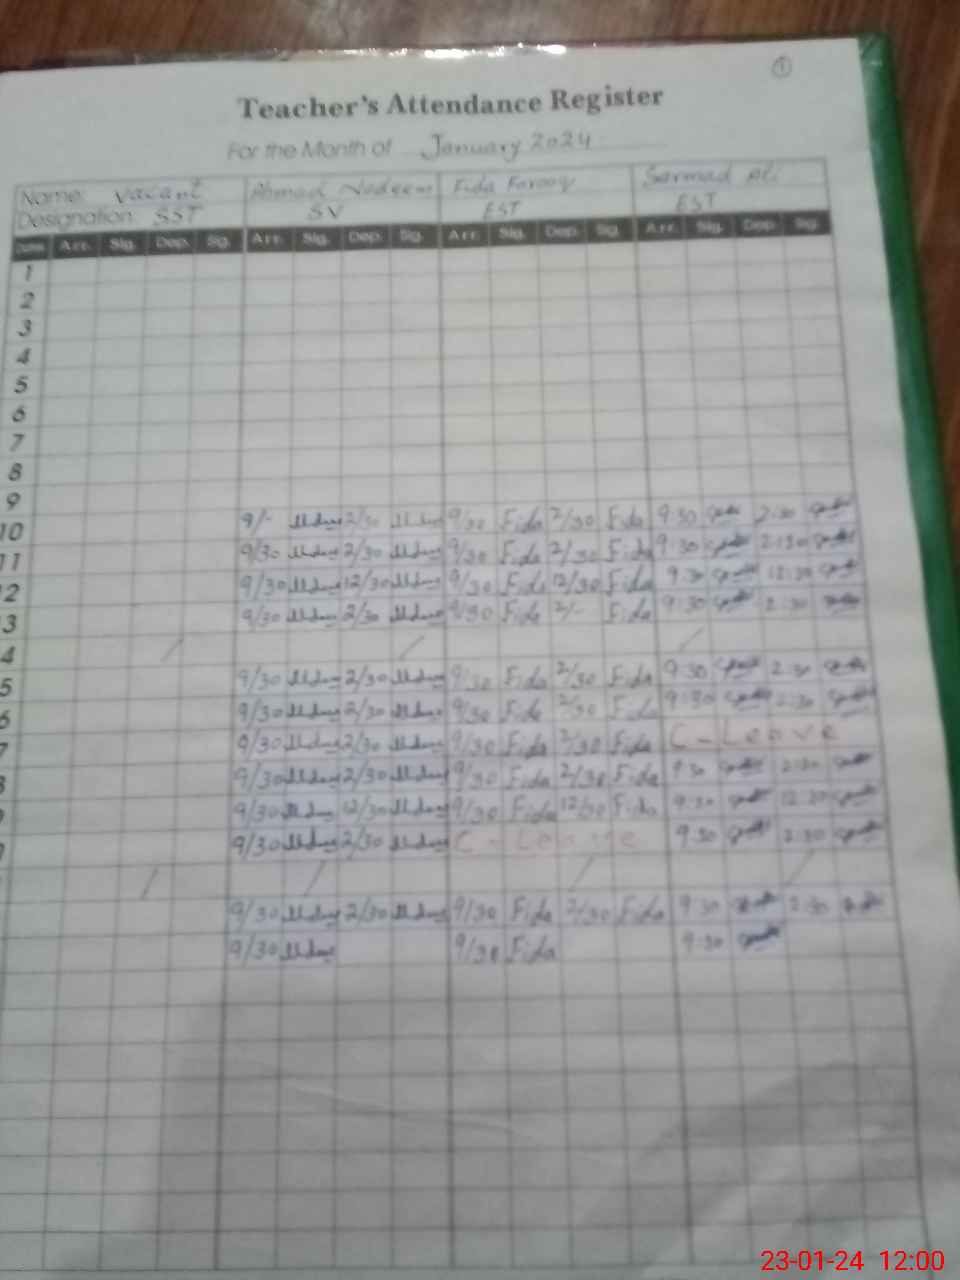 1
Teacher's Attendance Register
For the Month of January 2024
Name: Vacant Ahmad Nadeem Fida Farooq Sarmad Ali
Designation: SST SV EST EST
Date Arr. Sig. Dep. Sig. Arr. Sig. Dep. Sig. Arr. Sig. Dep. Sig. Arr. Sig. Dep. Sig.
1
2
3
4
5
6
7
8
9
10 9/- 2/30 9/30 Fida 2/30 Fida 9:30 2:30
11 9/30 2/30 9/30 Fida 2/30 Fida 9:30 2:30
2 9/30 12/30 9/30 Fida 12/30 Fida 9:30 12:30
3 9/30 2/30 9/30 Fida 2/- Fida 9:30 2:30
4 / / /
5 9/30 2/30 9/30 Fida 2/30 Fida 9:30 2:30
6 9/30 2/30 9/30 Fida 2/30 Fida 9:30 2:30
7 9/30 2/30 9/30 Fida 2/30 Fida C-Leave
8 9/30 2/30 9/30 Fida 2/30 Fida 9:30 2:30
9/30 12/30 9/30 Fida 12/30 Fida 9:30 12:30
9/30 2/30 C-Leave 9:30 2:30
/ / / /
9/30 2/30 9/30 Fida 2/30 Fida 9:30 2:30
9/30 9/30 Fida 9:30
23-01-24 12:00